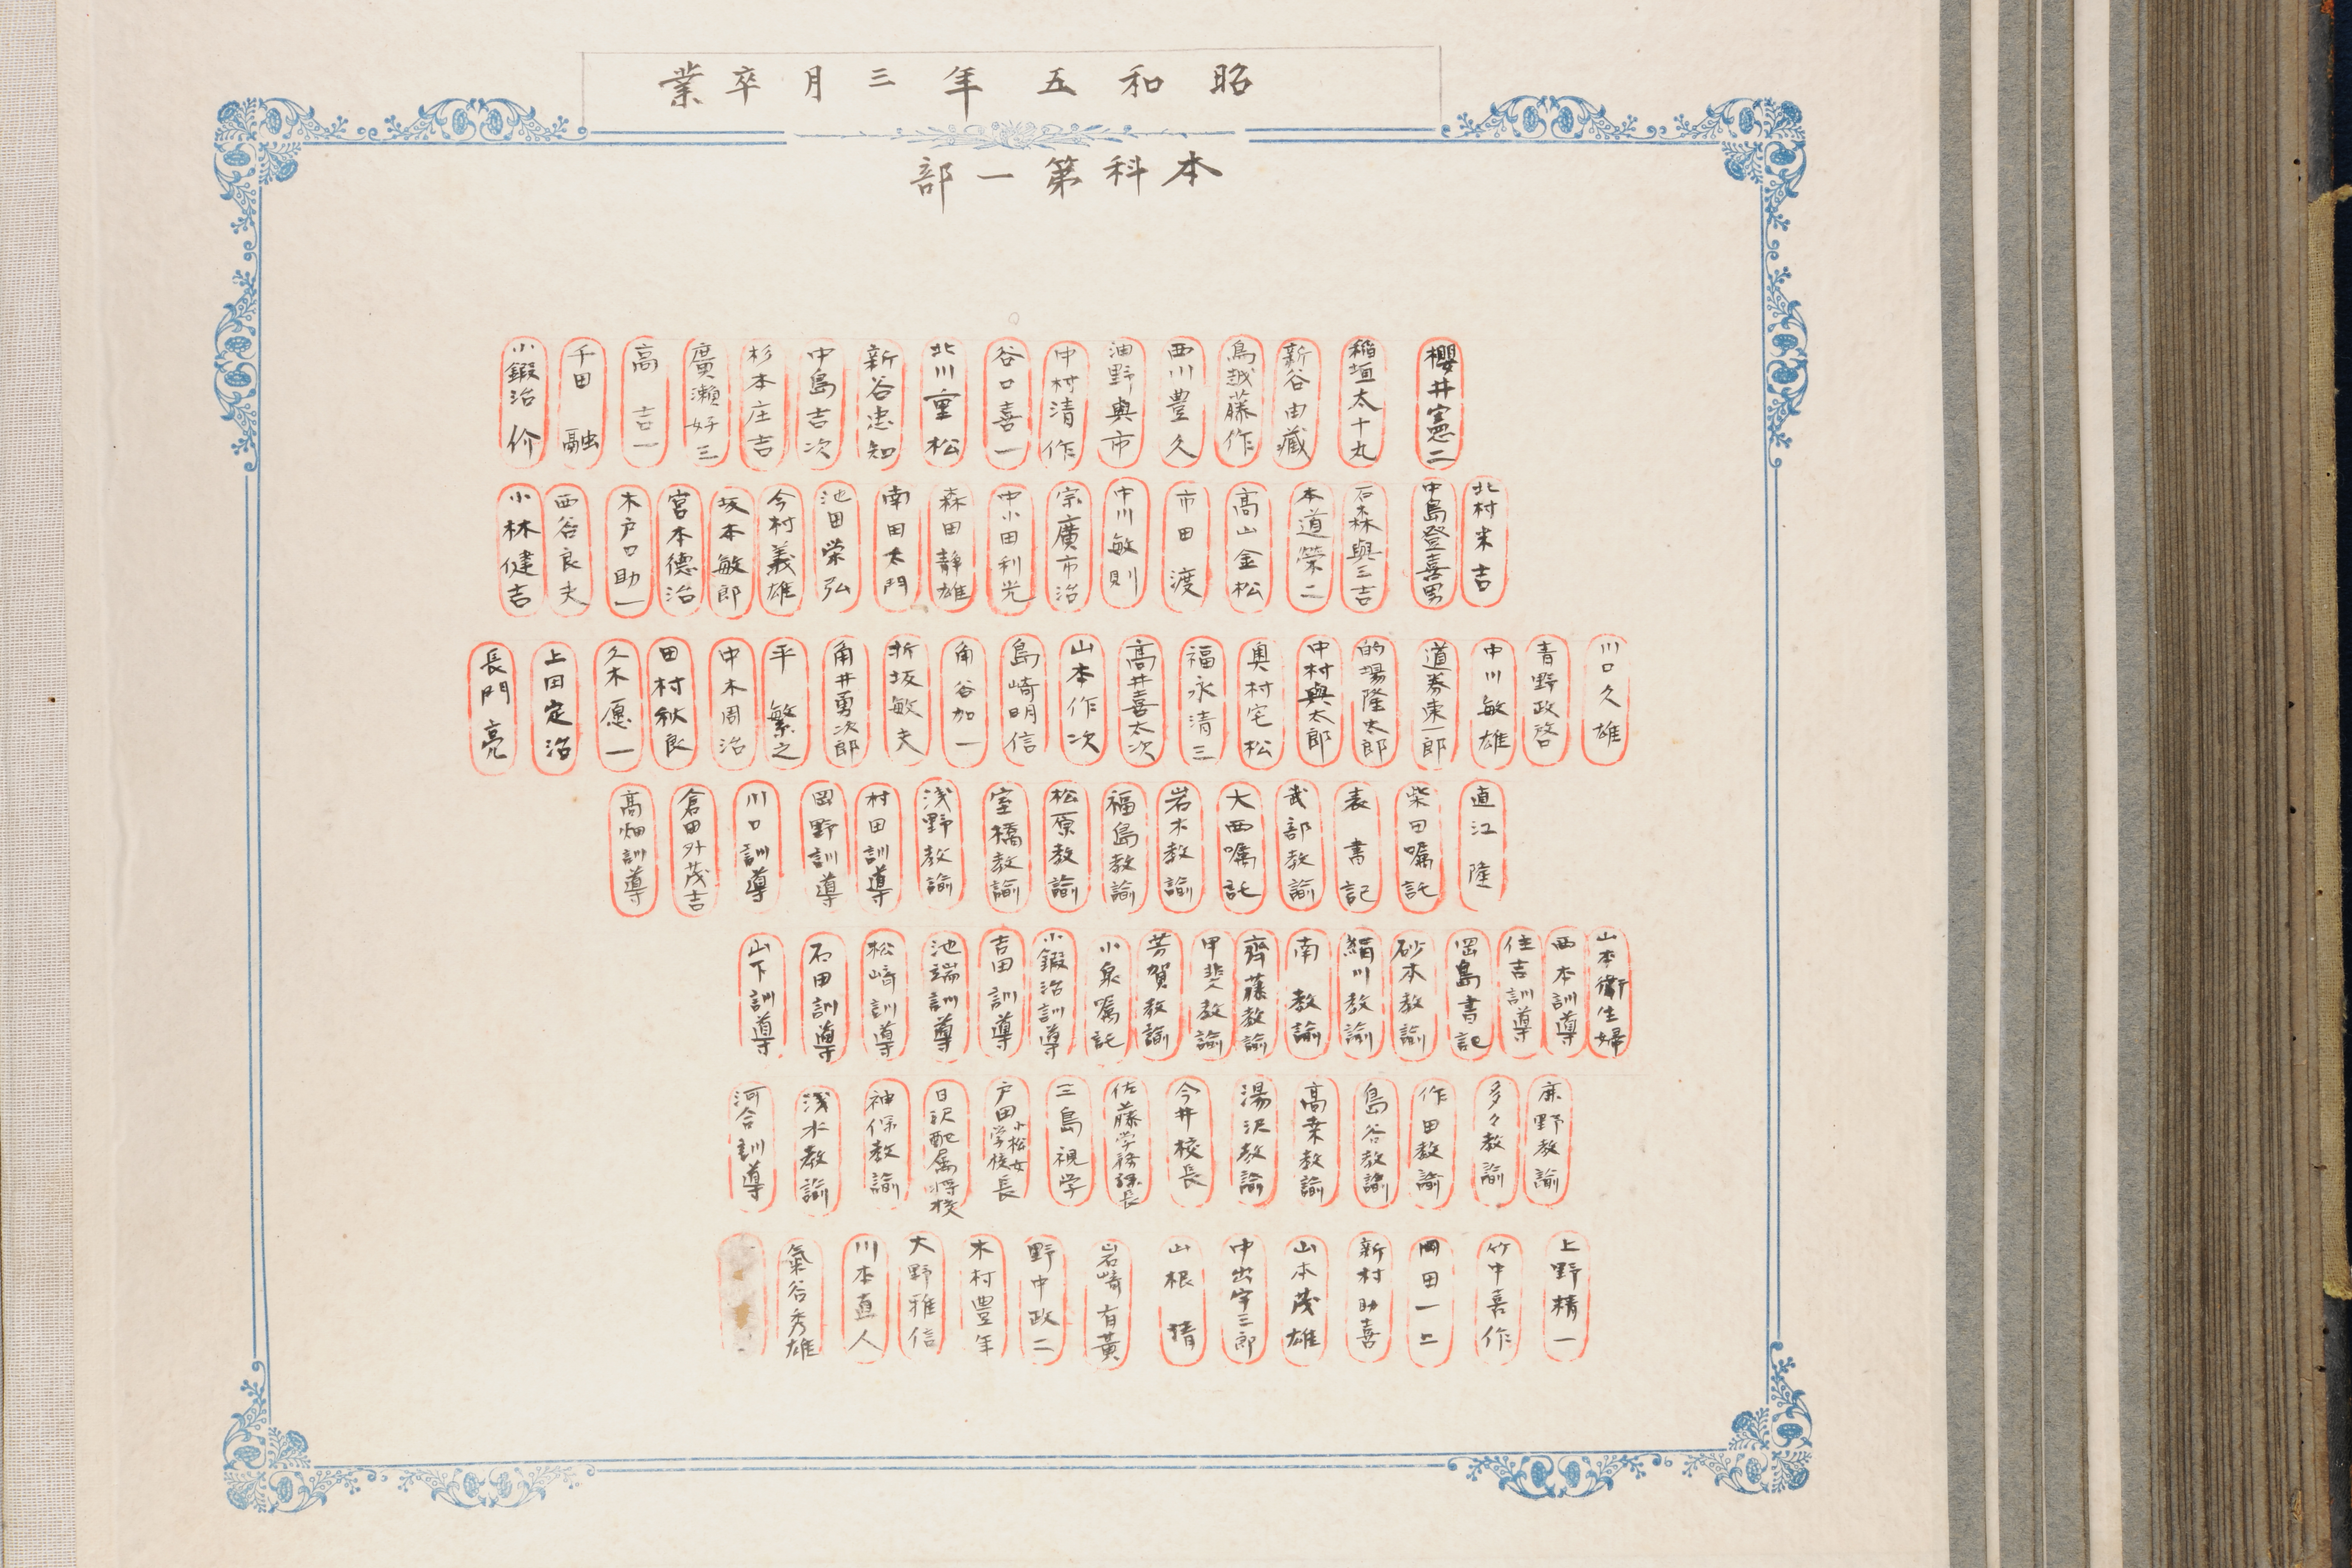 昭和五年三月卒業
本科第一部
櫻井憲二
稲垣太十丸
新谷由藏
鳥越藤作
西川豊久
油野與市
中村清作
谷口喜一
北川重松
新谷忠知
中島吉次
杉本庄吉
廣瀬好三
高吉一
千田融
小鍛治价
北村米吉
中島登喜男
石森與三吉
本道榮二
高山金松
市田渡
中川敏則
宗廣市治
中小田利光
森田静雄
南田太門
池田栄弘
今村義雄
坂本敏郎
宮本德治
木戸口助一
西谷良夫
小林健吉
川口久雄
青野政啓
中川敏雄
道券東一郎
的場隆太郎
中村與太郎
奥村宅松
福永清三
高井喜太次
山本作次
島崎明信
角谷加一
折坂敏夫
角井勇次郎
平繁之
中木周治
田村秋良
久木愿一
上田定治
長門亮
直江隆
柴田嘱託
表書記
武部教諭
大西嘱託
岩木教諭
福島教諭
松原教諭
室橋教諭
浅野教諭
村田訓導
岡野訓導
川口訓導
倉田外茂吉
高畑訓導
山本衛生婦
西本訓導
住吉訓導
岡島書記
砂本教諭
絹川教諭
南教諭
齊藤教諭
甲斐教諭
芳賀教諭
小泉嘱託
小鍛治訓導
吉田訓導
池端訓導
松崎訓導
石田訓導
山下訓導
鹿野教諭
多々教諭
作田教諭
島谷教諭
高桒教諭
湯沢教諭
今井校長
佐藤学務課長
三島視学
戸田小松女学校長
日沢配属将校
神保教諭
浅水教諭
河合訓導
上野精一
竹中喜作
岡田一二
新村助喜
山本茂雄
中出宇三郎
山根猜
岩崎有黄
野中政二
木村豊年
大野雅信
川本直人
氣谷秀雄